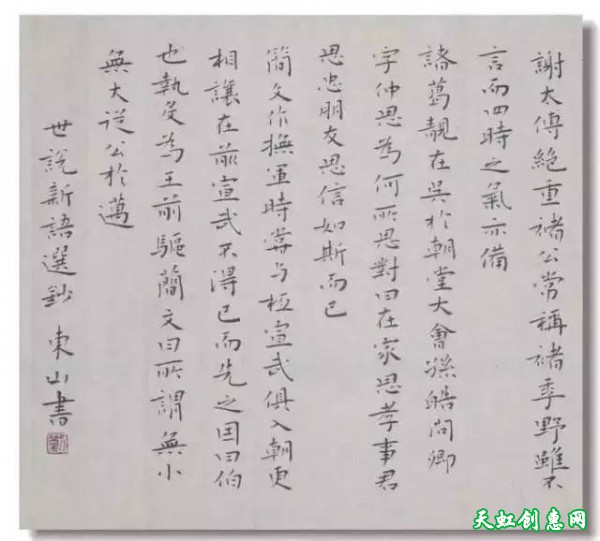 謝太傅絶重褚公常稱褚季野雖不
言而四時之氣亦備
諸葛靚在吳於朝堂大會孫皓問卿
字仲思為何所思對曰在家思孝事君
思忠朋友思信如斯而已
簡文作撫軍時嘗与桓宣武俱入朝更
相讓在前宣武不得已而先之因曰伯
也執殳為王前驅簡文曰所謂無小
無大從公於邁
世說新語選鈔 東山書
天虹创惠网